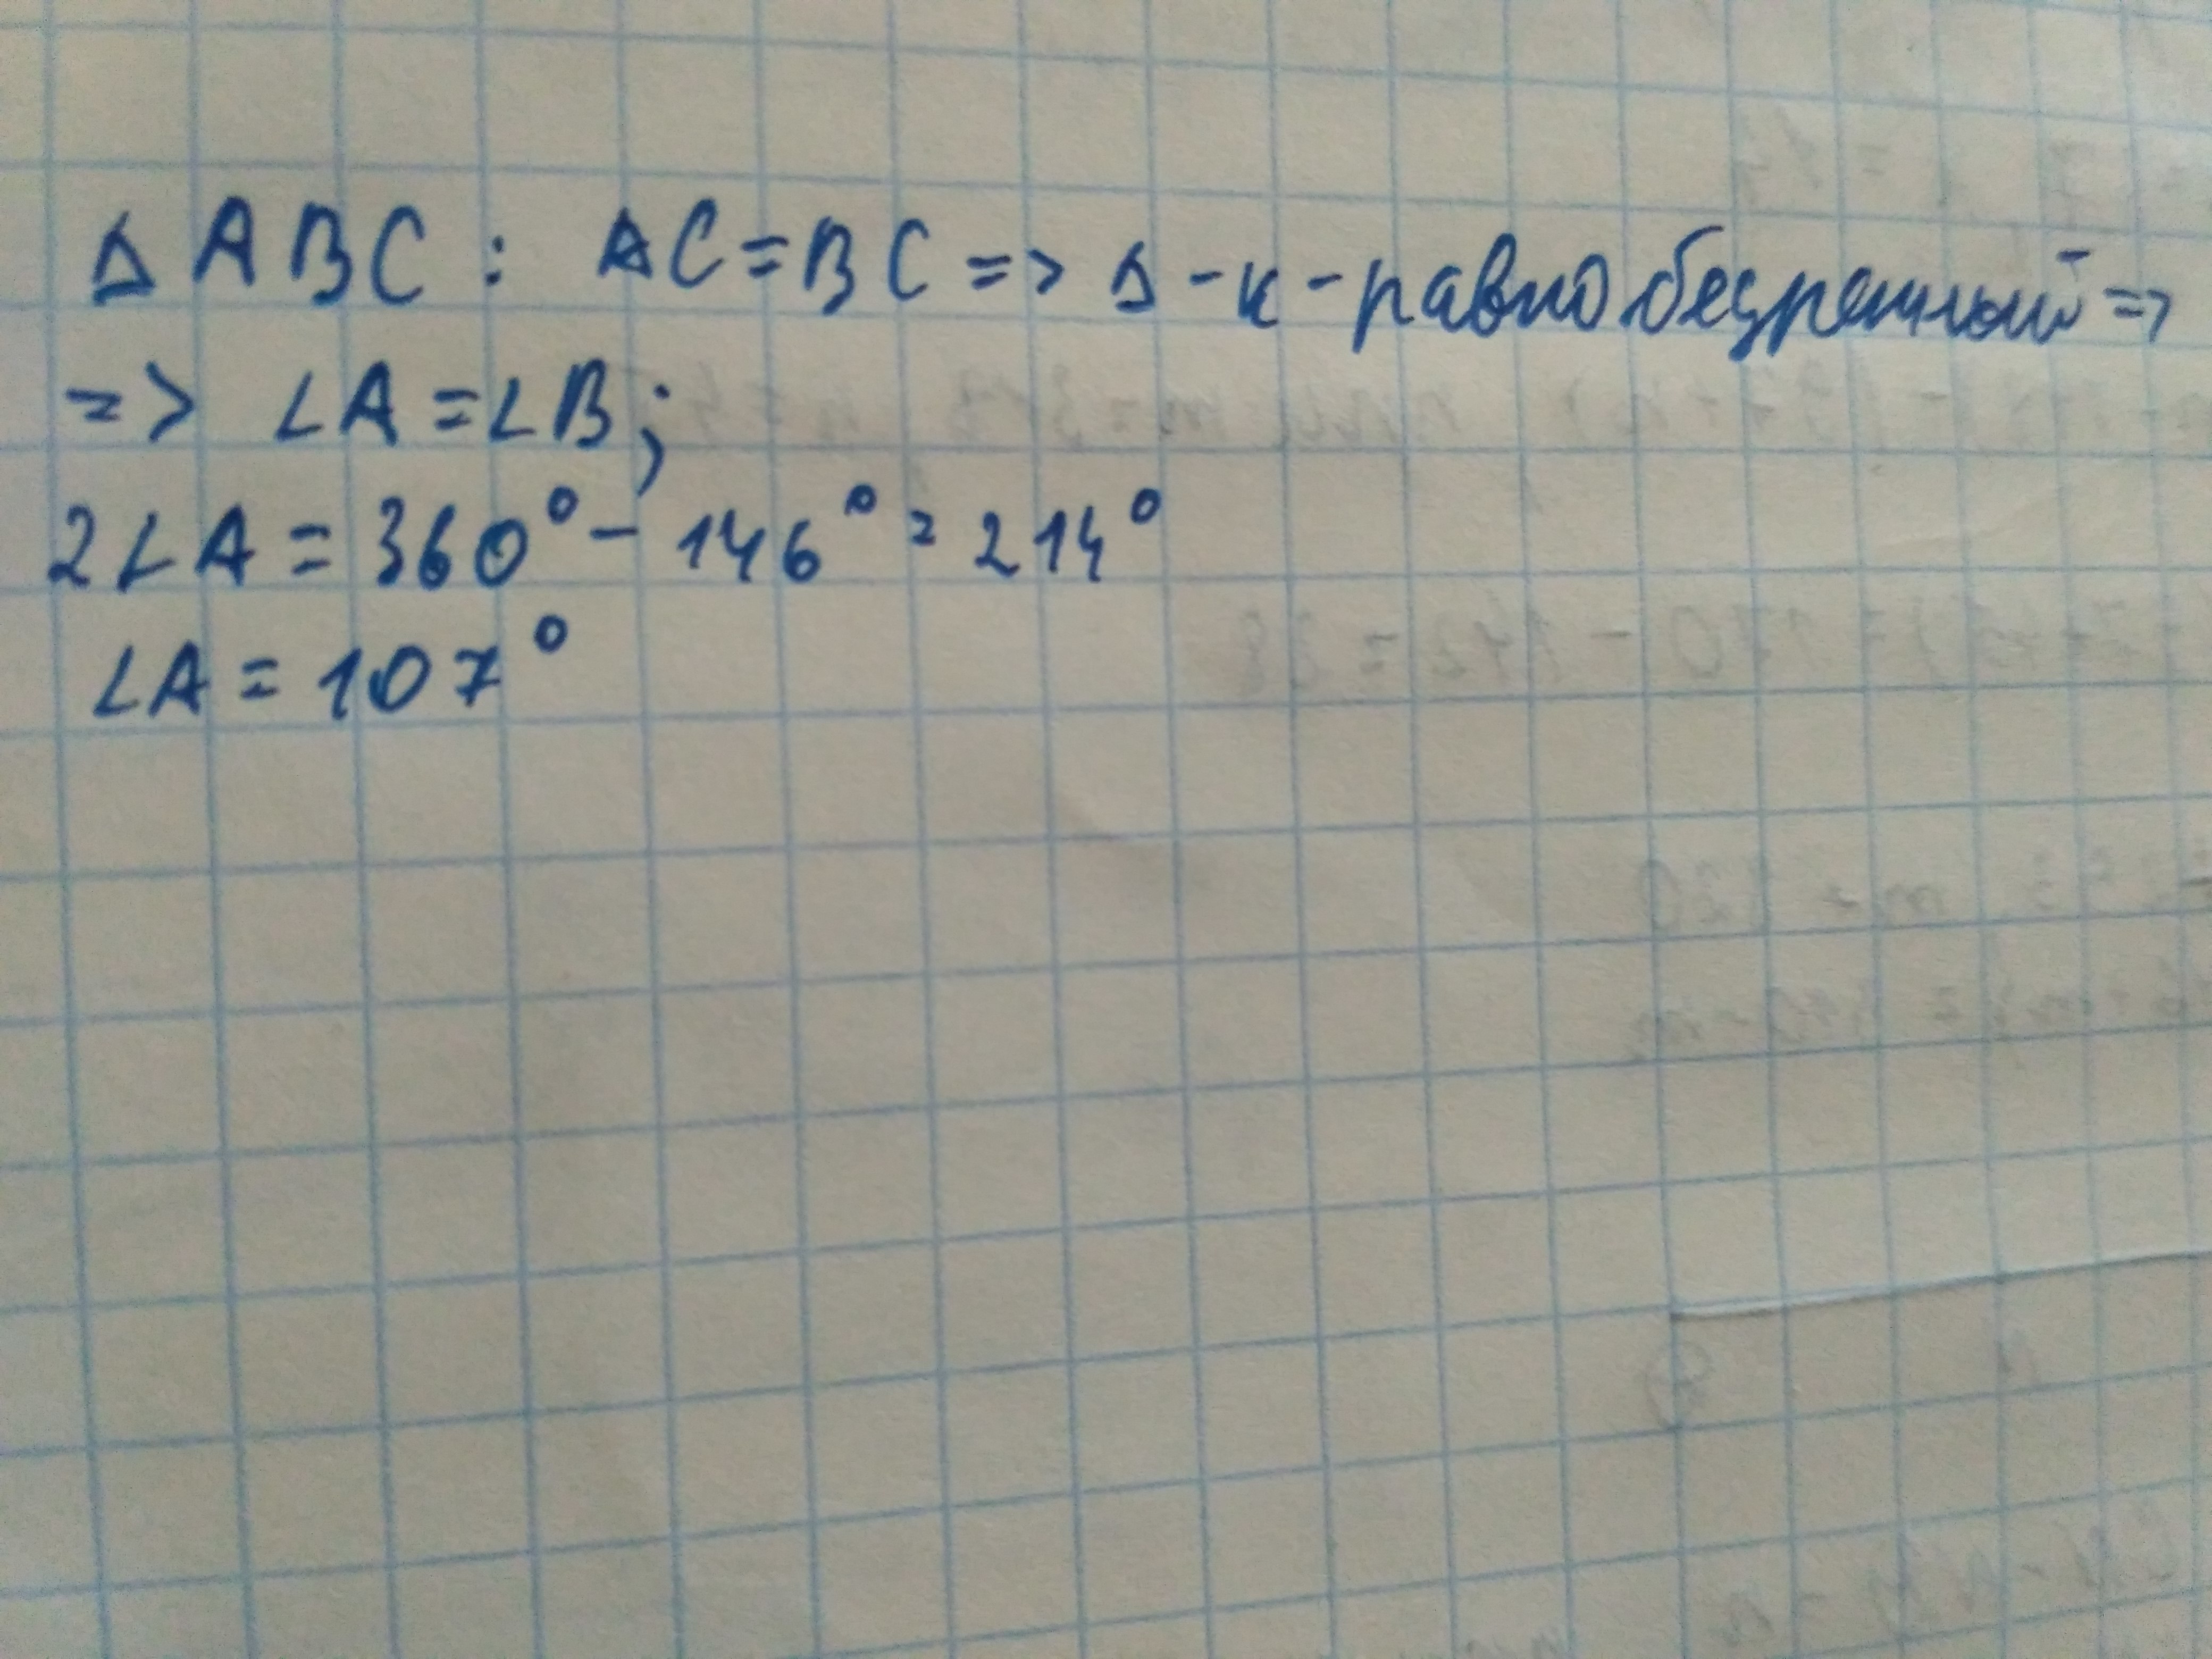 Δ ABC : AC = BC => Δ-к-равнобедренный =>
=> ∠A = ∠B;
2∠A = 360° - 146° = 214°
∠A = 107°